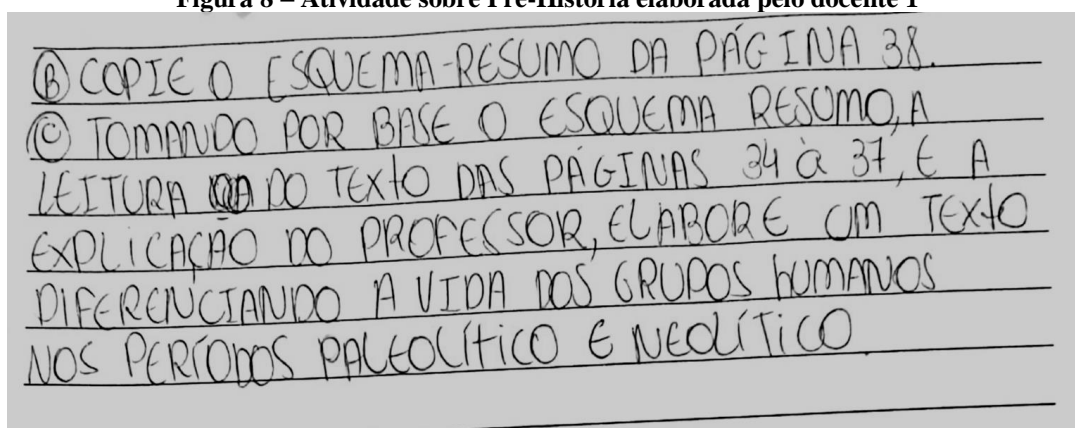 Figura 8 – Atividade sobre Pré-História elaborada pelo docente 1
Ⓑ COPIE O ESQUEMA-RESUMO DA PÁGINA 38.
Ⓒ TOMANDO POR BASE O ESQUEMA RESUMO, A
LEITURA DO TEXTO DAS PÁGINAS 34 à 37, E A
EXPLICAÇÃO DO PROFESSOR, ELABORE UM TEXTO
DIFERENCIANDO A VIDA DOS GRUPOS HUMANOS
NOS PERÍODOS PALEOLÍTICO E NEOLÍTICO